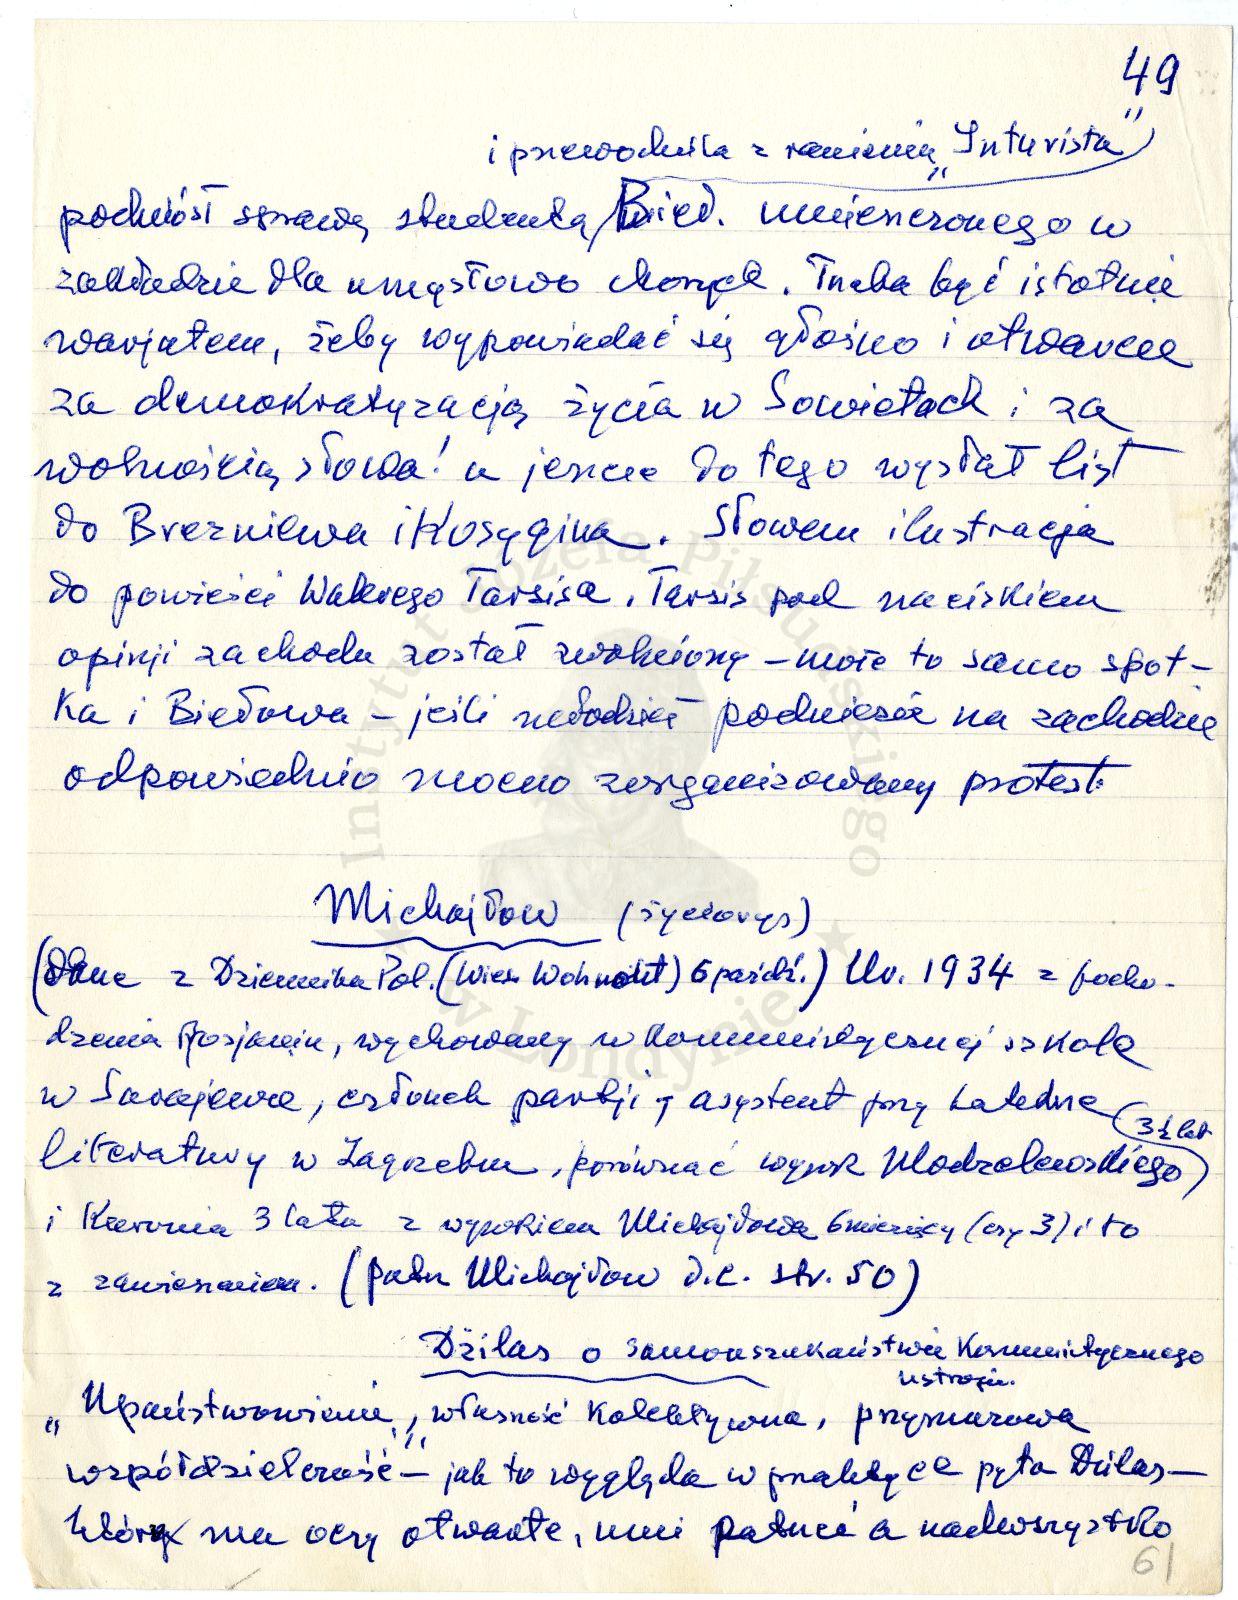 49
i przewodnika z ramienia „Inturista"
podniósł sprawę studenta Bied. umieszczonego w
zakładzie dla umysłowo chorych. Trzeba być istotnie
warjatem, żeby wypowiadać się głośno i otwarcie
za demokratyzacją życia w Sowietach i za
wolnością słowa! a jeszcze do tego wysłał list
do Breżniewa i Kosygina. Słowem ilustracja
do powieści Walerego Tarsisa. Tarsis pod naciskiem
opinji zachodu został zwolniony – może to samo spot-
ka i Biełowa – jeśli młodzież podniesie na zachodzie
odpowiednio mocno zorganizowany protest.
Michajłow (życiorys)
(dane z Dziennika Pol. (Wiesł. Wohnout) 6 paźdź.) Ur. 1934 z pocho-
dzenia Rosjanin, wychowany w komunistycznej szkole
w Sarajewie, członek partji, asystent przy katedrze
3½ lat
literatury w Zagrzebiu, porównać wyrok Modzelewskiego
i Kuronia 3 lata z wyrokiem Michajłowa 6 miesięcy (czy 3) i to
z zawieszeniem. (patrz Michajłow d.c. str. 50)
Dżilas o samooszukaństwie Komunistycznego
ustroju.
„Upaństwowienie", własność kolektywna, przymusowa
współdzielczość – jak to wygląda w praktyce pyta Dżilas –
który ma oczy otwarte, umie patrzeć a nadewszystko
61
Instytut Józefa Piłsudskiego
w Londynie